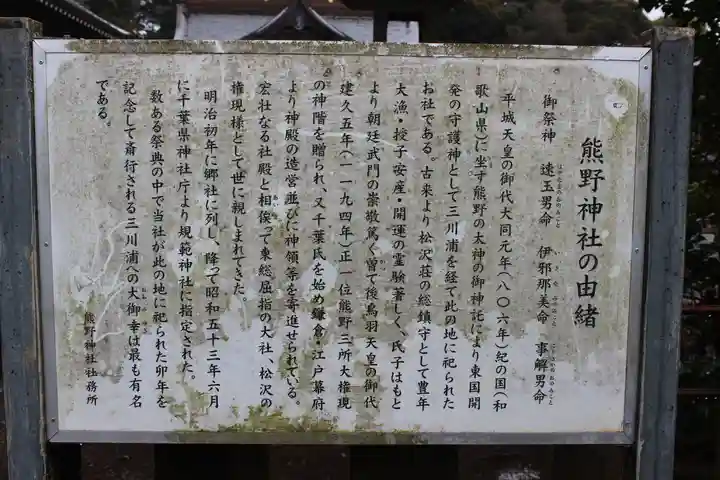 熊野神社の由緒
御祭神　速玉男命　伊邪那美命　事解男命
平城天皇の御代大同元年（八〇六年）紀の国（和
歌山県）に坐す熊野の太神の御神託により東国開
発の守護神として三川浦を経て此の地に祀られた
お社である。古来より松沢荘の総鎮守として豊年
大漁・授子安産・開運の霊験著しく、氏子はもと
より朝廷武門の崇敬篤く曽て後鳥羽天皇の御代
建久五年（一一九四年）正一位熊野三所大権現
の神階を贈られ、又千葉氏を始め鎌倉・江戸幕府
より神殿の造営並びに神領等を寄進せられている。
宏壮なる社殿と相俟って東総屈指の大社、松沢の
権現様として世に親しまれてきた。
明治初年に郷社に列し、降って昭和五十三年六月
に千葉県神社庁より規範神社に指定された。
数ある祭典の中で当社が此の地に祀られた卯年を
記念して斎行される三川浦への大御幸は最も有名
である。
熊野神社社務所